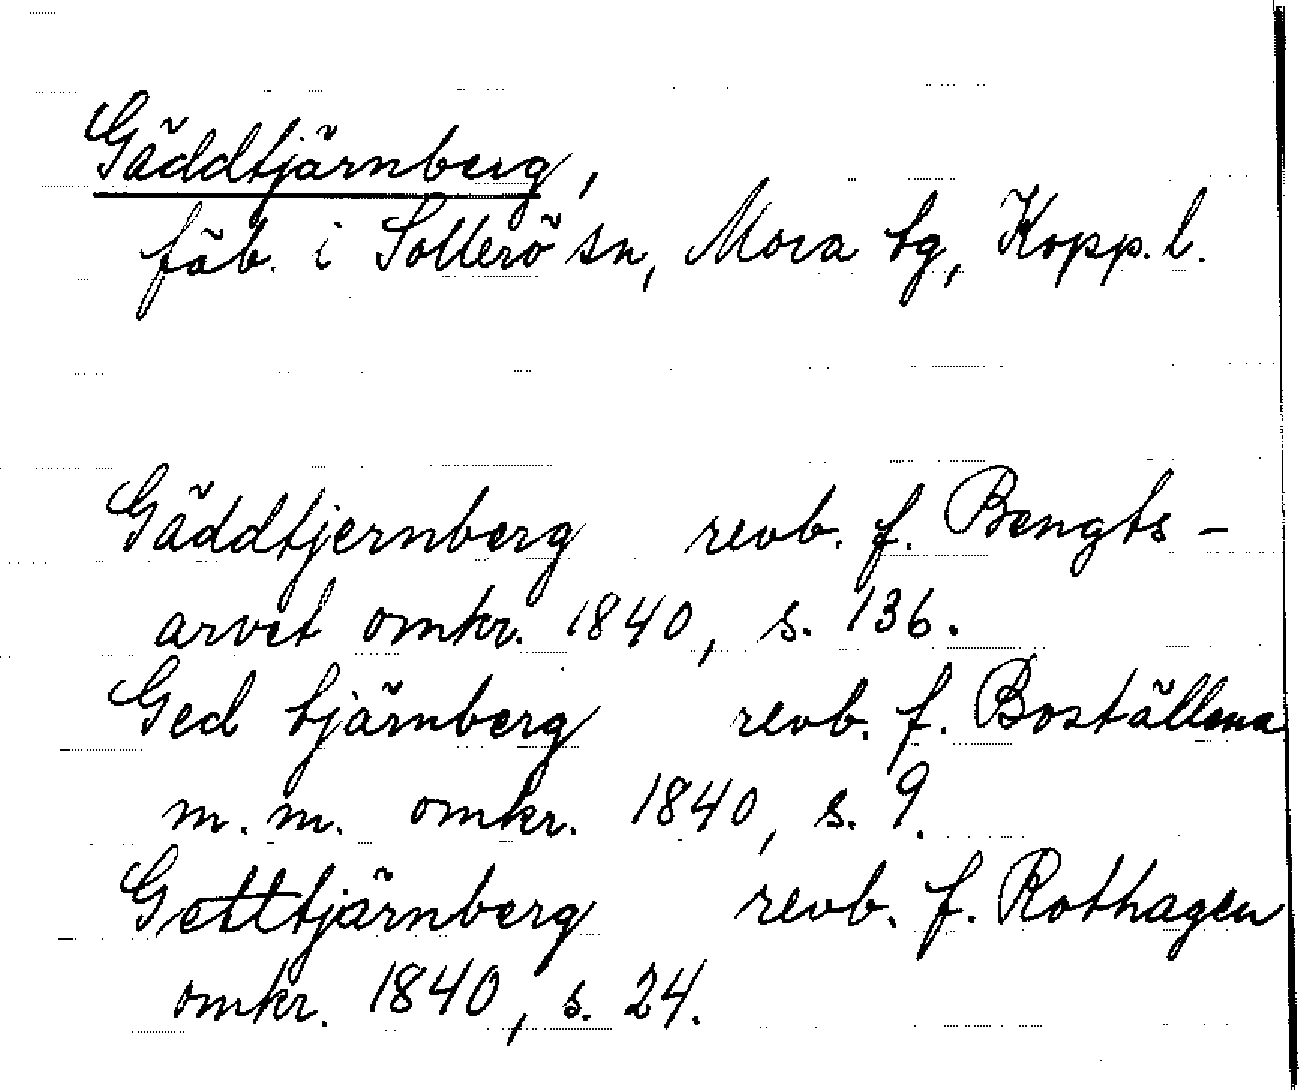 Gäddtjärnberg,
fäb. i Sollerö sn, Mora tg, Kopp. l.
Gäddtjernberg revb. f. Bengts-
arvet omkr. 1840, s. 136.
Ged tjärnberg revb. f. Boställena
m.m. omkr. 1840, s. 9.
Getttjärnberg revb. f. Rothagen
omkr. 1840, s. 24.